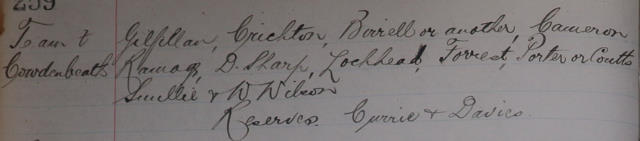 259
Team t Gilfillan, Crichton, Birrell or another, Cameron
Cowdenbeath Ramage, D. Sharp, Lochhead, Forrest, Porter or Coutts
Smellie & W Wilson
Reserves. Currie & Davies.